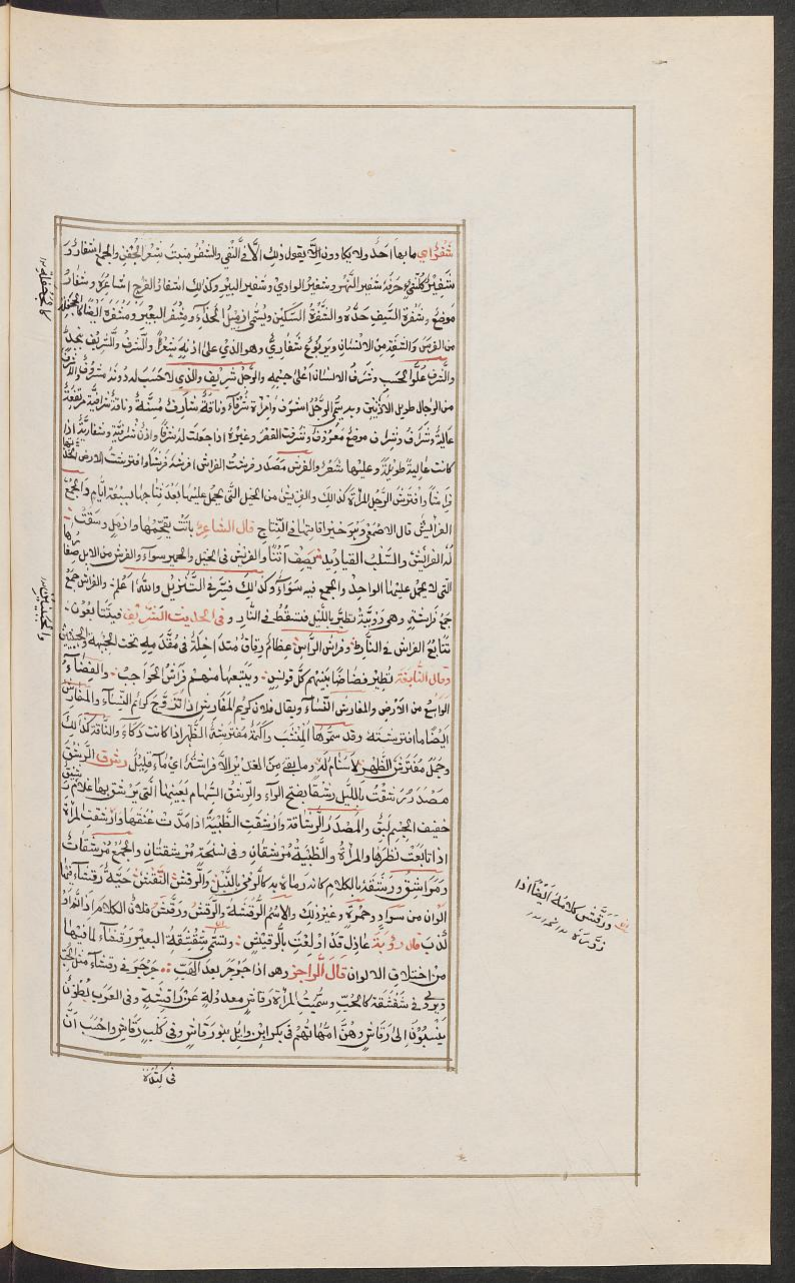 شُفْرٌ اي ما بها احد ولا يكادون يقول ذلك الّا في النّفي والشفر منبت شعر الجفن والجمع اشفار و
شفير كل شيء حرفه شفير النّهر وشفير الوادي وشفير البير وكذلك اشفار الفرج اشاعره وشفار
موضع وشفرة السّيف حدّه والشّفرة السّكين ويُسمّى ازميل الحذّاء ومشفر البعير ومشفره ايضًا كالجحفلة
من الفرس والشفة من الانسان ويربوع شفاريّ وهو الذي على اذنه شعر والشّرف والشّريف بنجد
والشرف علو الحسب وشرف الانسان اعلى جسمه والرجل شريف والذي لا حسب له دونه مشروف
من الرجال طويل الاذنين وبه يسمّى الرجل اشرف وامراة شرفاء وناقة شارف مُسنّة وناقة شرافية مرتفعة
عالية وشراف وشراف موضع معروف وشرفت القصر وغيره اذا جعلت له شرفا واذن شرفية وشفارية اذا
كانت عالية طويلة وعليها شعر والفرش مصدر فرشت الفراش افرشه فرشا وافترشت الارض
فراشا وافترش الرجل المراة كذلك والفريش من الخيل التي يحمل عليها بعد نتاجها بسبعة ايام والجمع
الفرائش قال الاصمعي وهو خير اقامتها في النتاج قال الشاعر باتت يقحّمها ذو ازمل وسقت
له الفرائش والسلب القياديد يصف اتنا والفريش في الخيل والحمير سواء والفرش من الابل صغارها
التي لا يحمل عليها الواحد والجمع فيه سواء وكذلك فسّر في التنزيل والله اعلم والفراش جمع
جمع فراشة وهي دويبّة تطير بالليل فتسقط في النار وفي الحديث الشريف فيتتابعون
تتابع الفراش في النار وفراش الراس عظام رقاق متداخلة في مقدّمه تحت الجبهة والجبينين
وقال النابغة تطير فضاضا بينهم كل قونس ويتبعها منهم فراش الحواجب والفضاء
الواسع من الارض والمفارش النساء ويقال فلان كريم المفارش اذا تزوج كرائم النساء والمفارش
ايضا ما افترشته وقد سموها المنتشب واكمة مفترشة الظهر اذا كانت دكاء والناقة كذلك
وجمل مفترش الظهر لا سنام له وما بقي من الغدير الّا فراشة اي ماء قليل رشق الرشق
مصدر رشقت بالنبل رشقا بفتح الراء والرشق السهام بعينها التي يرشق بها غلام رشيق
خفيف الجسم لبق والمصدر الرشاقة وارشقت الظبية اذا مدّت عنقها وارشقت المراة
اذا تابعت نظرها والمراة والظبية مرشقان وفي نسخة مرشقتان والجمع مرشقات
ومراشق ورشقه بالكلام كانه رماه به كالرمي بالنبل والرقش التنقش حيّة رقشاء فيها
الوان من سواد وحمرة وغير ذلك والاسم الرقشة والرقش ورقّش فلان الكلام اذا
لذب قال رؤبة عاذل قد اولعت بالترقيش وتسمى شقشقة البعير رقشاء لما فيها
من اختلاف الالوان قال الراجز وهو اذا جرجر بعد الهبّ جرجر في رقشاء مثل الحب
ويروى في شقشقة كالحب وسميت المراة رقاش معدولة عن راقشة وفي العرب بطون
ينسبون الى رقاش وهن امهاتهم في بكر ابن وايل بنو رقاش وفي كلب رقاش واحسب ان
في كندة
كالجحفلة
والجبينين
ورقّش كلامه ايضا اذا
زوّره